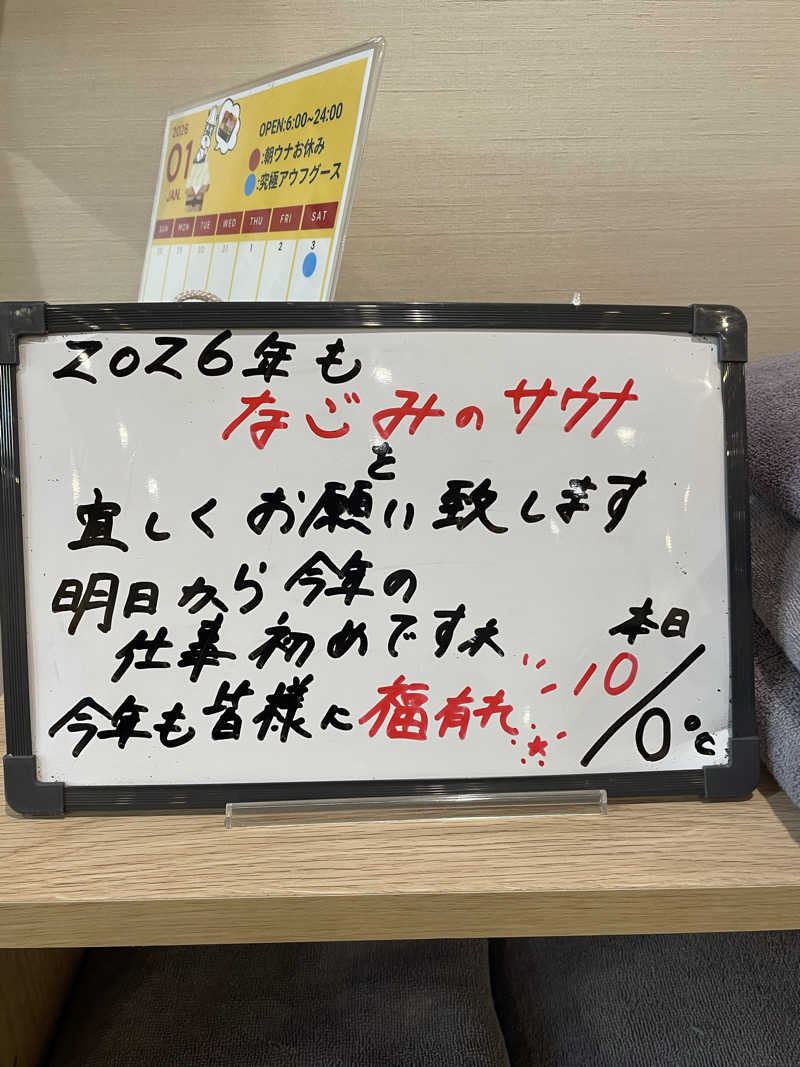 2026
01
JAN.
OPEN:6:00~24:00
:朝ウナお休み
:究極アウフグース
SUN MON TUE WED THU FRI SAT
28 29 30 31 1 2 3
2026年も
なごみのサウナ
と
宜しくお願い致します
明日から今年の
仕事初めです
今年も皆様に福有れ
本日
10/0℃